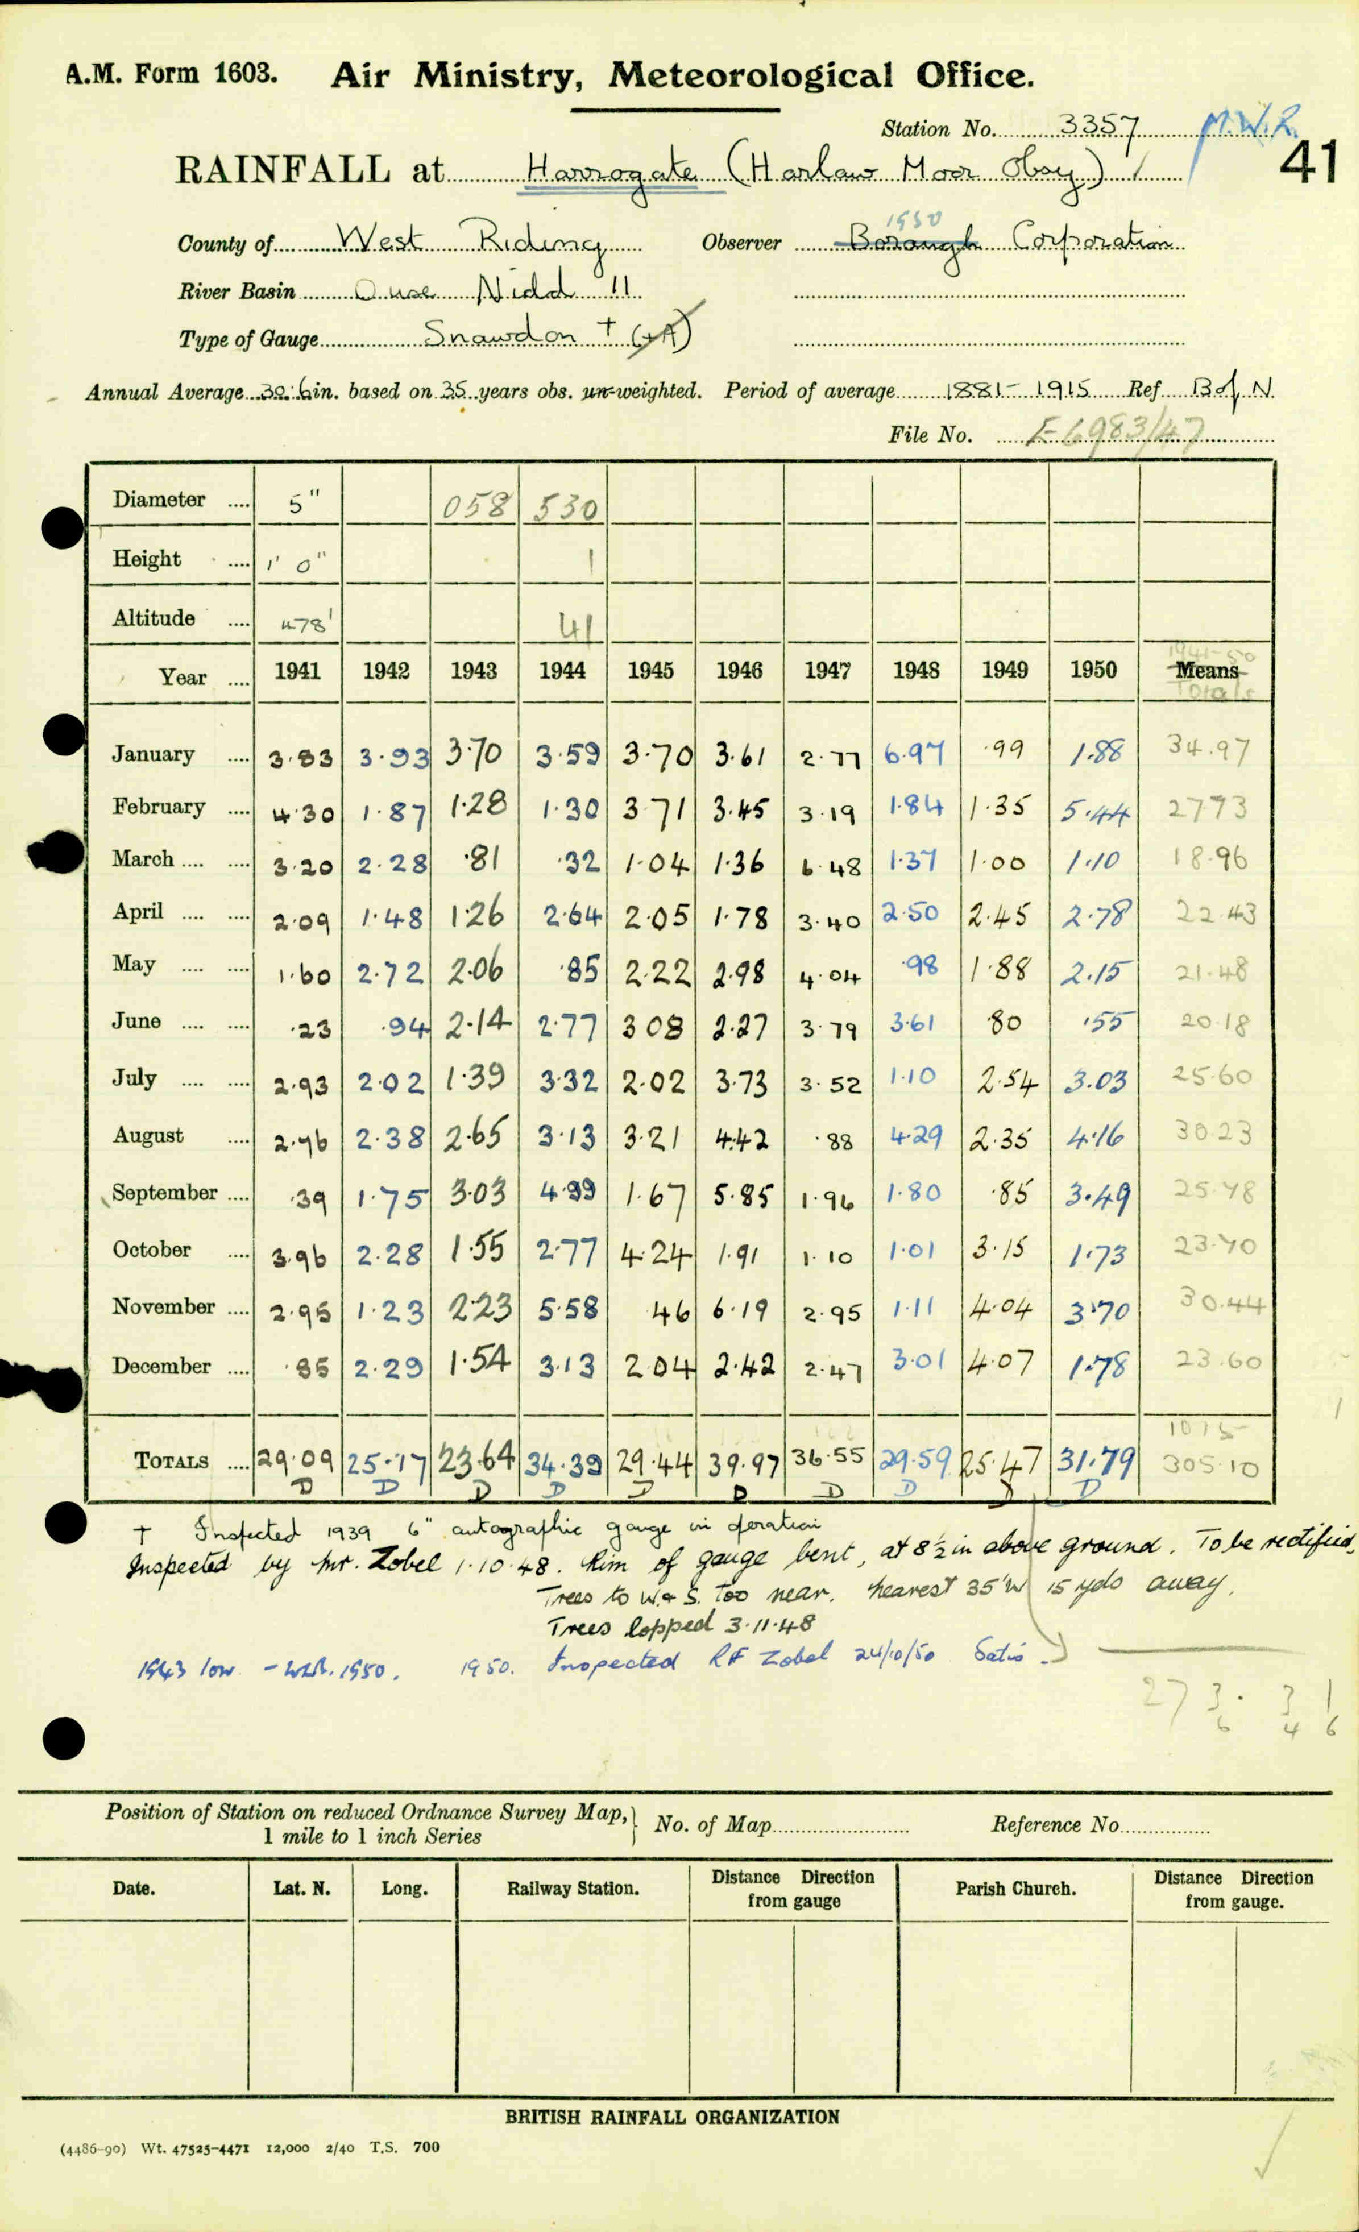 A.M. Form 1603. Air Ministry, Meteorological Office.
Station No. 3357 M.W.R.
41
RAINFALL at Harrogate (Harlow Moor Obsy)
1950
County of West Riding Observer Borough Corporation
River Basin Ouse Nidd 11
Type of Gauge Snowdon † (+A)
Annual Average 30.6 in. based on 35 years obs. un-weighted. Period of average 1881-1915 Ref B of N
File No. E6983/47
Diameter .... 5" 058 530
Height .... 1' 0" 1
Altitude .... 478' 41
1941-50
Year .... 1941 1942 1943 1944 1945 1946 1947 1948 1949 1950 Means
Totals
January .... 3.83 3.93 3.70 3.59 3.70 3.61 2.77 6.97 .99 1.88 34.97
February .... 4.30 1.87 1.28 1.30 3.71 3.45 3.19 1.84 1.35 5.44 27.73
March .... .... 3.20 2.28 .81 .32 1.04 1.36 6.48 1.37 1.00 1.10 18.96
April .... .... 2.09 1.48 1.26 2.64 2.05 1.78 3.40 2.50 2.45 2.78 22.43
May .... .... 1.60 2.72 2.06 .85 2.22 2.98 4.04 .98 1.88 2.15 21.48
June .... .... .23 .94 2.14 2.77 3.08 2.27 3.79 3.61 .80 .55 20.18
July .... .... 2.93 2.02 1.39 3.32 2.02 3.73 3.52 1.10 2.54 3.03 25.60
August .... 2.76 2.38 2.65 3.13 3.21 4.42 .88 4.29 2.35 4.16 30.23
September .... .39 1.75 3.03 4.99 1.67 5.85 1.96 1.80 .85 3.49 25.78
October .... 3.96 2.28 1.55 2.77 4.24 1.91 1.10 1.01 3.15 1.73 23.70
November .... 2.95 1.23 2.23 5.58 .46 6.19 2.95 1.11 4.04 3.70 30.44
December .... .85 2.29 1.54 3.13 2.04 2.42 2.47 3.01 4.07 1.78 23.60
1015
TOTALS .... 29.09 25.17 23.64 34.39 29.44 39.97 36.55 29.59 25.47 31.79 305.10
D D D D D D D D D D
† Inspected 1939 6" autographic gauge in operation
Inspected by Mr. Zobel 1.10.48. Rim of gauge bent, at 8½ in above ground. To be rectified.
Trees to W & S. too near. Nearest 35' W 15 yds away.
Trees lopped 3.11.48
1943 low 1950. 1950. Inspected RF Zobel 24/10/50 Satis.
27 3. 3 1
6 4 6
Position of Station on reduced Ordnance Survey Map, 1 mile to 1 inch Series } No. of Map Reference No.
Date. Lat. N. Long. Railway Station. Distance Direction from gauge Parish Church. Distance Direction from gauge.
BRITISH RAINFALL ORGANIZATION
(4486-90) Wt. 47525-4471 12,000 2/40 T.S. 700